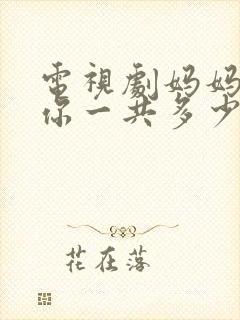 電視劇妈妈
你一共多少
花在落